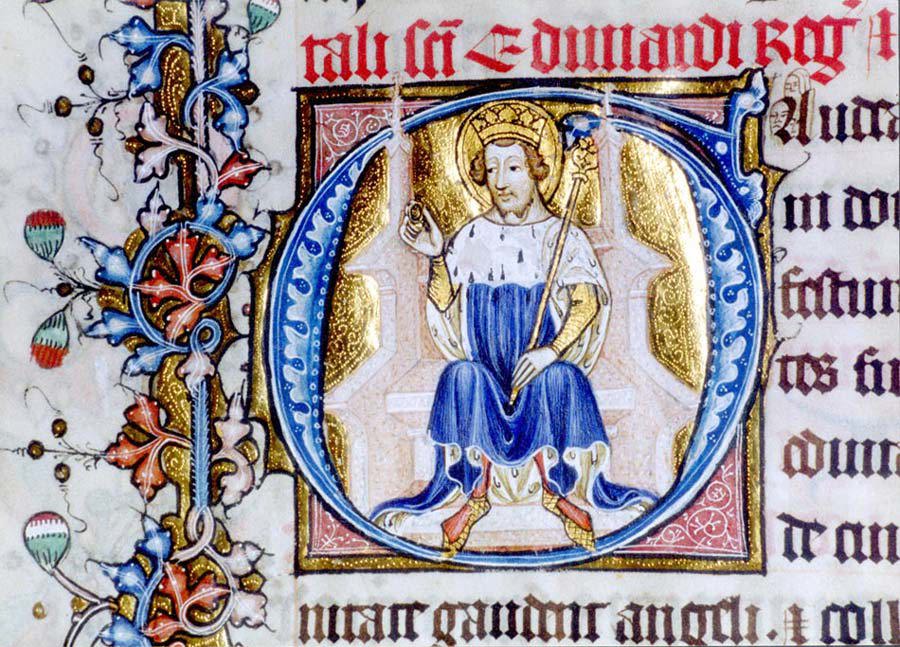 tali sc̄i Edwardi Reg̃
GAudea
in do
festum
tes su
edwa
de cui
nitate gaudent angeli. ⁊ coll